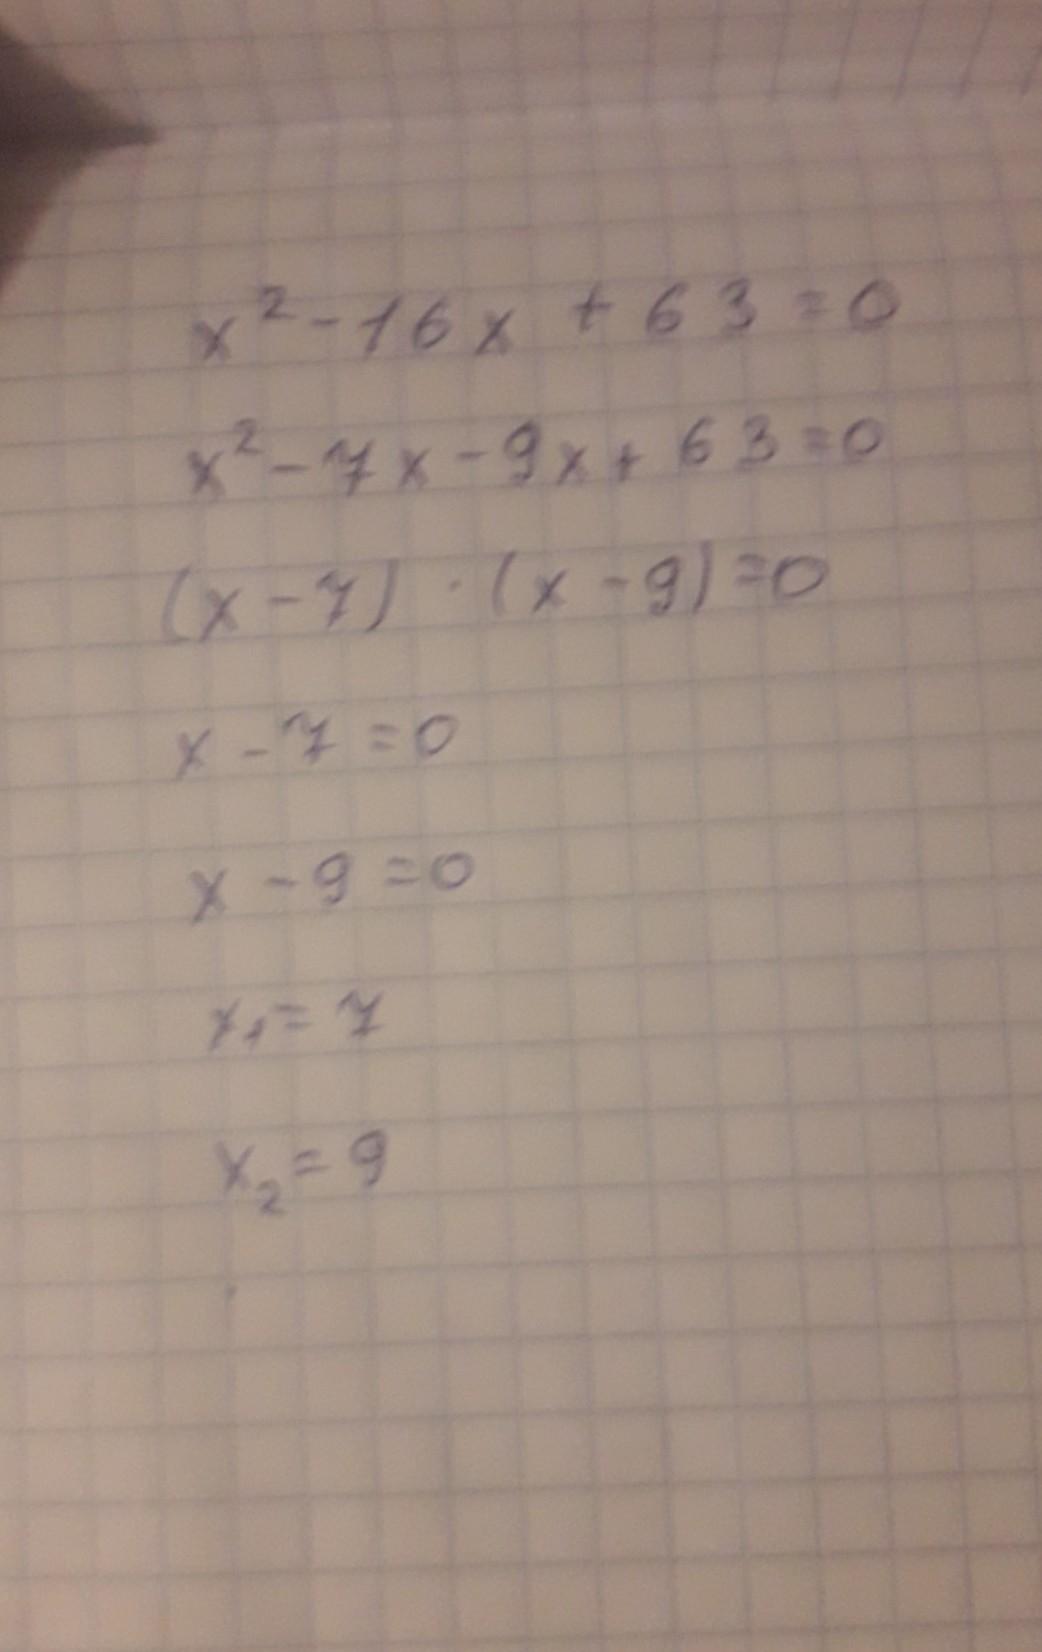 x² - 16x + 63 = 0
x² - 7x - 9x + 63 = 0
(x - 7) · (x - 9) = 0
x - 7 = 0
x - 9 = 0
x₁ = 7
x₂ = 9